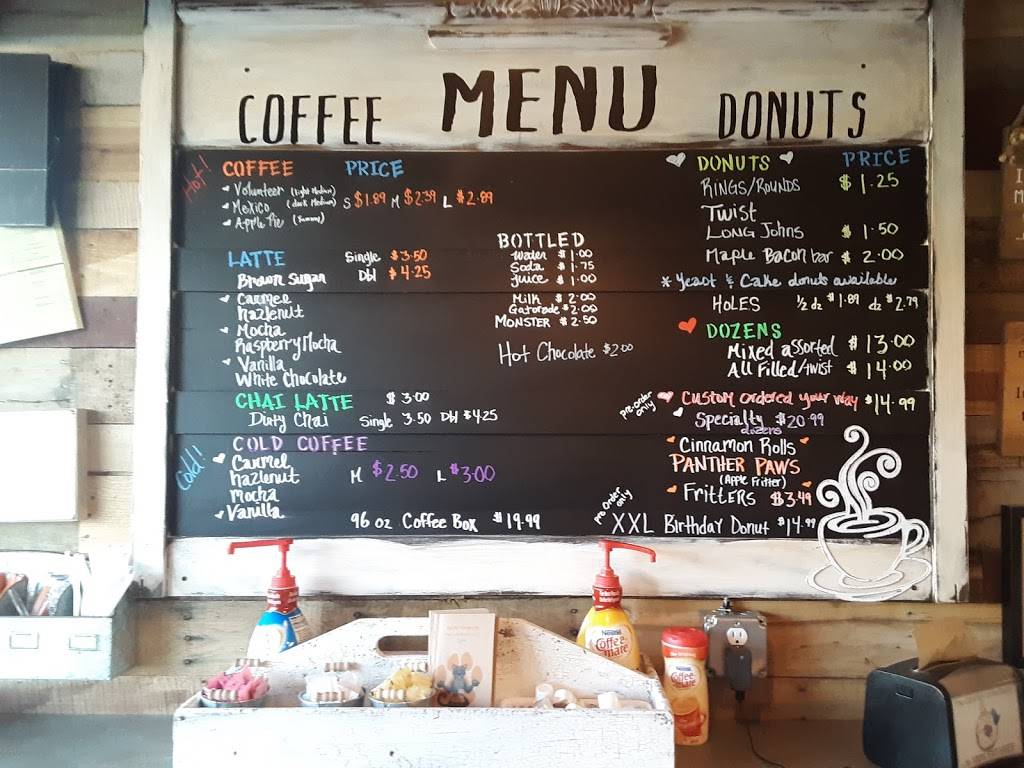 MENU
COFFEE
DONUTS
Hot!
COFFEE PRICE
Volunteer (Light Medium)
Mexico (dark Medium) S $1.89 M $2.39 L $2.89
Apple Pie (Yummy)
LATTE Single $3.50
Brown Sugar Dbl $4.25
Carmel
hazlenut
Mocha
Raspberry Mocha
Vanilla
White Chocolate
CHAI LATTE $3.00
Dirty Chai Single 3.50 Dbl $4.25
Cold!
COLD COFFEE
Carmel
hazlenut M $2.50 L $3.00
Mocha
Vanilla
96 oz Coffee Box $19.99
BOTTLED
Water $1.00
Soda $1.75
juice $1.00
Milk $2.00
Gatorade $2.00
MONSTER $2.50
Hot Chocolate $2.00
DONUTS PRICE
RINGS/ROUNDS $1.25
Twist
LONG JOHNS $1.50
Maple Bacon bar $2.00
* Yeast & Cake donuts available
HOLES 1/2 dz $1.89 dz $2.79
DOZENS
Mixed assorted $13.00
All Filled/twist $14.00
pre-order only
Custom ordered your way $14.99
Specialty $20.99
dozens
Cinnamon Rolls
PANTHER PAWS
(Apple Fritter)
FRITTERS $3.49
pre order only
XXL Birthday Donut $14.99
Nestle
Coffee-mate
Coffee-mate